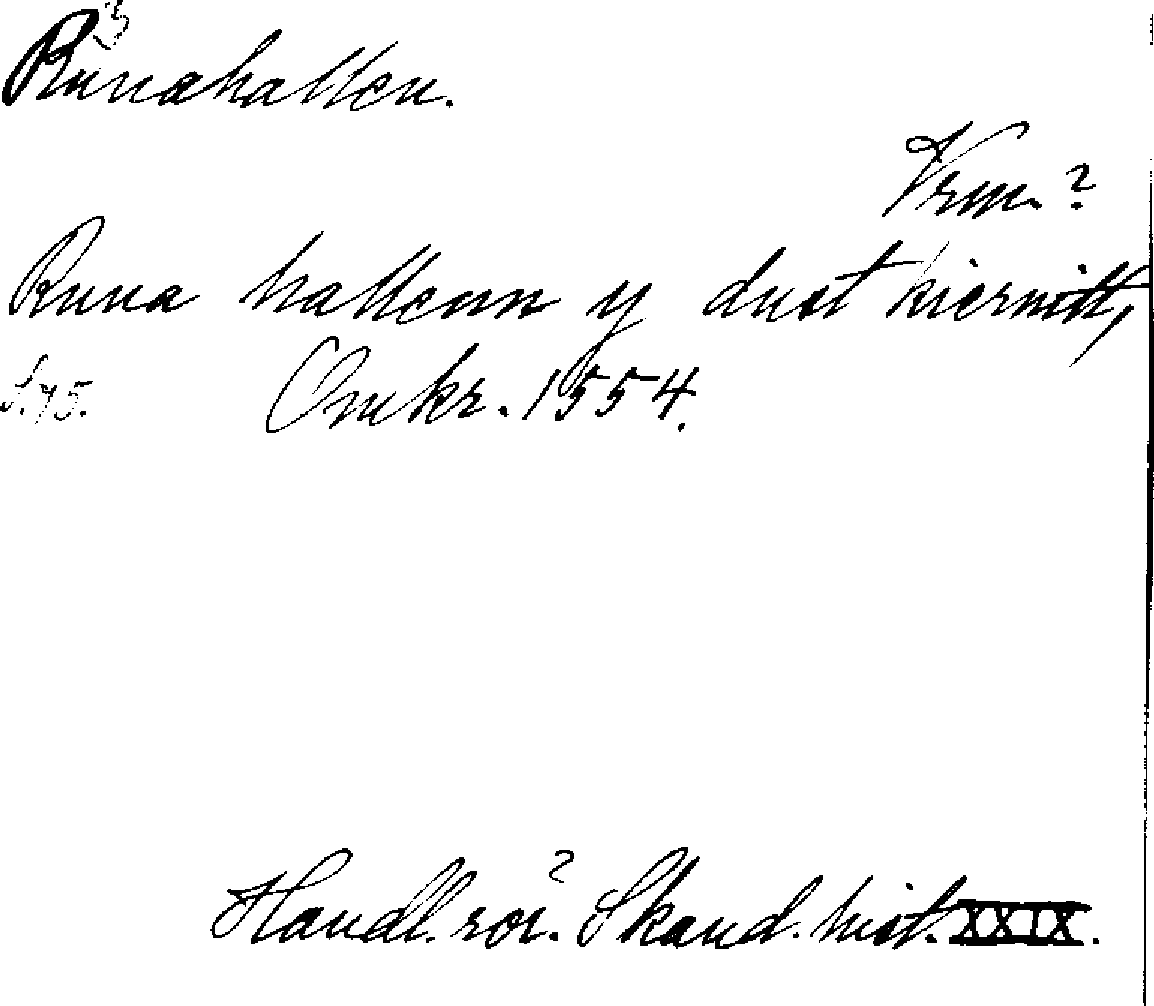 Runahallen.
Vrm.?
Runa hallenn y dust kiernitt,
S. 75. Omkr. 1554.
Handl. rör. Skand. hist. XXIX.